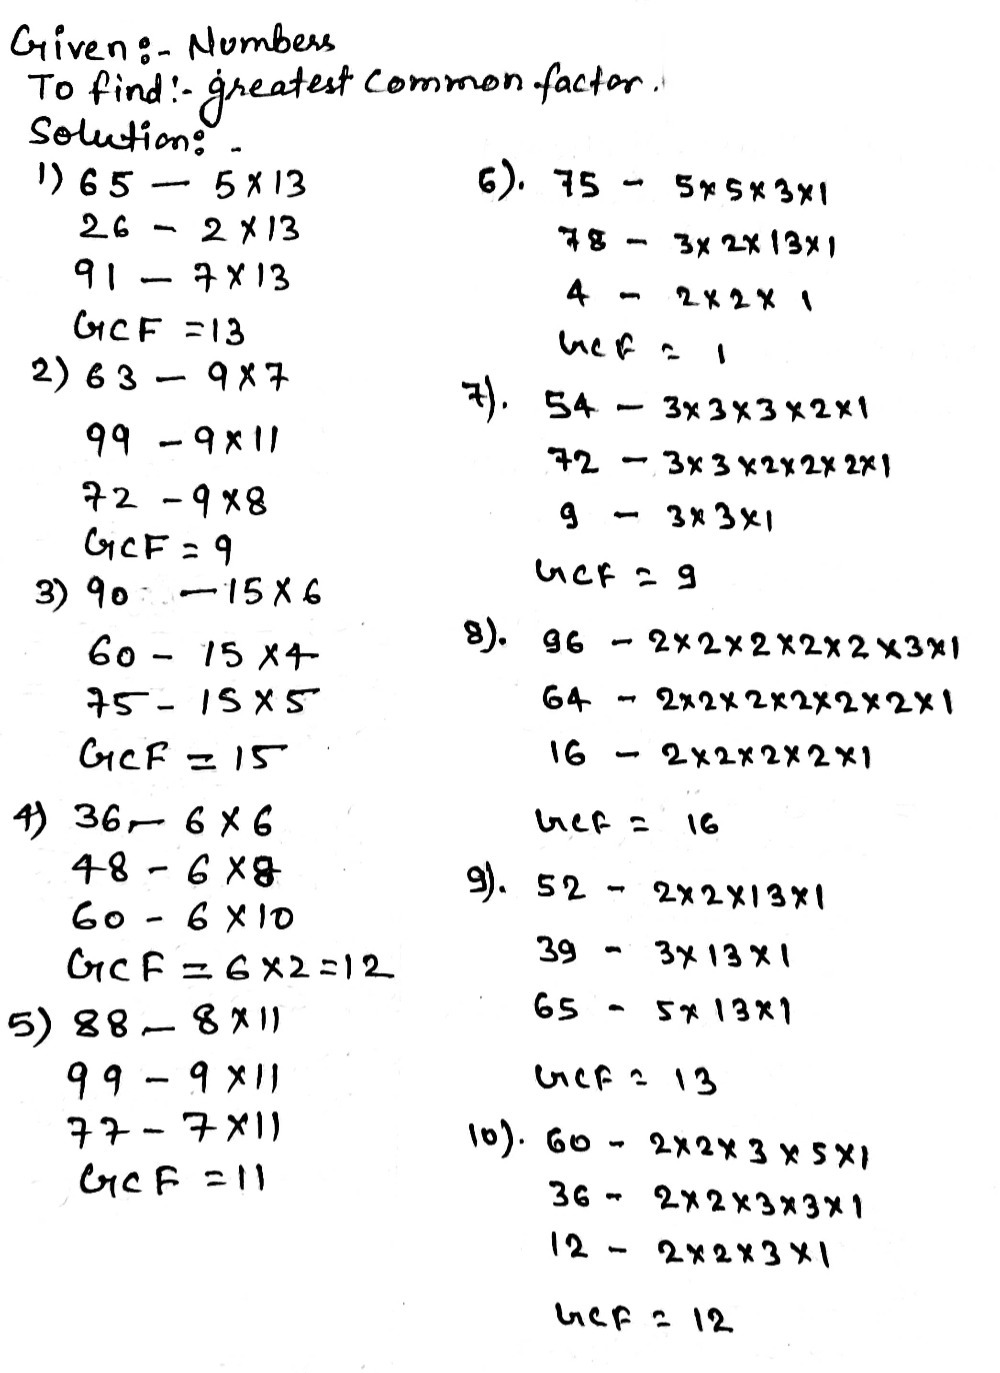 Given:- Numbers
To find:- greatest common factor.
Solution:-
1) 65 — 5 x 13
26 - 2 x 13
91 — 7 x 13
GCF = 13
2) 63 — 9 x 7
99 - 9 x 11
72 - 9 x 8
GCF = 9
3) 90 — 15 x 6
60 - 15 x 4
75 - 15 x 5
GCF = 15
4) 36 — 6 x 6
48 - 6 x 8
60 - 6 x 10
GCF = 6 x 2 = 12
5) 88 — 8 x 11
99 - 9 x 11
77 - 7 x 11
GCF = 11
6). 75 - 5 x 5 x 3 x 1
78 - 3 x 2 x 13 x 1
4 - 2 x 2 x 1
GCF = 1
7). 54 - 3 x 3 x 3 x 2 x 1
72 - 3 x 3 x 2 x 2 x 2 x 1
9 - 3 x 3 x 1
GCF = 9
8). 96 - 2 x 2 x 2 x 2 x 2 x 3 x 1
64 - 2 x 2 x 2 x 2 x 2 x 2 x 1
16 - 2 x 2 x 2 x 2 x 1
GCF = 16
9). 52 - 2 x 2 x 13 x 1
39 - 3 x 13 x 1
65 - 5 x 13 x 1
GCF = 13
10). 60 - 2 x 2 x 3 x 5 x 1
36 - 2 x 2 x 3 x 3 x 1
12 - 2 x 2 x 3 x 1
GCF = 12